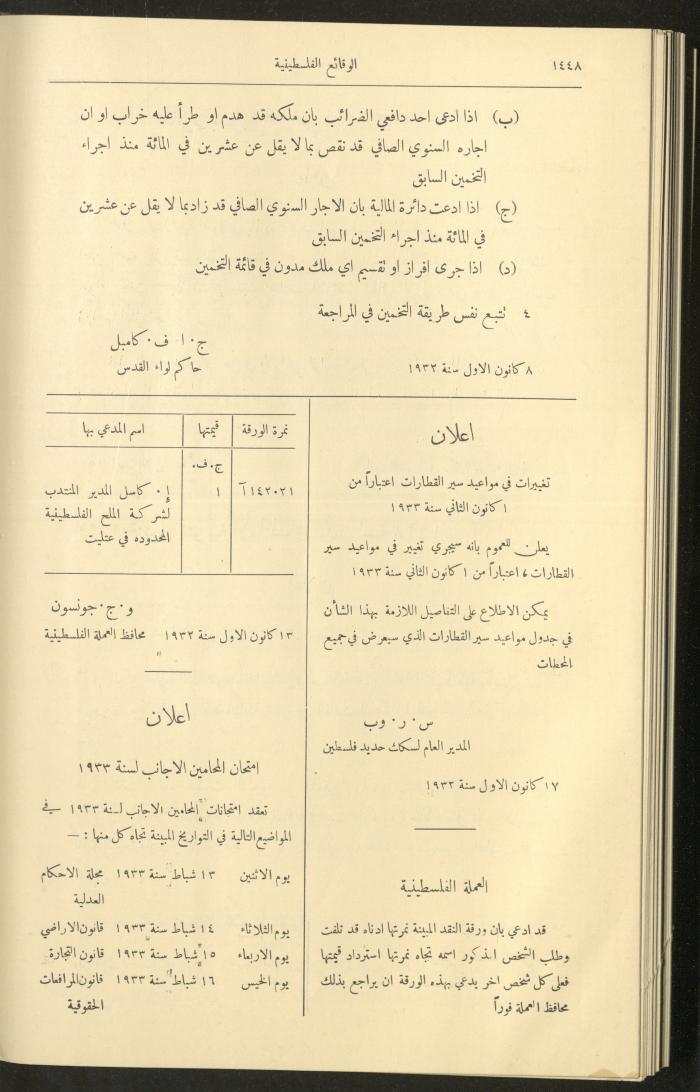 ١٤٤٨
الوقائع الفلسطينية
(ب) اذا ادعى احد دافعي الضرائب بان ملكه قد هدم او طرأ عليه خراب او ان
اجاره السنوي الصافي قد نقص بما لا يقل عن عشرين في المائة منذ اجراء
التخمين السابق
(ج) اذا ادعت دائرة المالية بان الاجار السنوي الصافي قد زاد بما لا يقل عن عشرين
في المائة منذ اجراء التخمين السابق
(د) اذا جرى افراز او تقسيم اي ملك مدون في قائمة التخمين
٤ تتبع نفس طريقة التخمين في المراجعة
ج٠ ا ف٠ كامبل
٨ كانون الاول سنة ١٩٣٢
حاكم لواء القدس
اعلان
تغييرات في مواعيد سير القطارات اعتباراً من
١ كانون الثاني سنة ١٩٣٣
يعلن للعموم بانه سيجري تغيير في مواعيد سير
القطارات، اعتباراً من ١ كانون الثاني سنة ١٩٣٣
يمكن الاطلاع على التفاصيل اللازمة بهذا الشأن
في جدول مواعيد سير القطارات الذي سيعرض في جميع
المحطات
س٠ ر٠ وب
المدير العام لسكك حديد فلسطين
١٧ كانون الاول سنة ١٩٣٢
العملة الفلسطينية
قد ادعي بان ورقة النقد المبينة نمرتها ادناه قد تلفت
وطلب الشخص المذكور اسمه تجاه نمرتها استرداد قيمتها
فعلى كل شخص اخر يدعي بهذه الورقة ان يراجع بذلك
محافظ العملة فوراً
نمرة الورقة قيمتها اسم المدعي بها
ج٠ف٠
١٤٢٠٢١ آ ١ إ٠ كاسل المدير المنتدب
لشركة الملح الفلسطينية
المحدوده في عتليت
و٠ج٠ جونسون
١٣ كانون الاول سنة ١٩٣٢ محافظ العملة الفلسطينية
اعلان
امتحان المحامين الاجانب لسنة ١٩٣٣
تعقد امتحانات المحامين الاجانب لسنة ١٩٣٣ في
المواضيع التالية في التواريخ المبينة تجاه كل منها : —
يوم الاثنين ١٣ شباط سنة ١٩٣٣ مجلة الاحكام
العدلية
يوم الثلاثاء ١٤ شباط سنة ١٩٣٣ قانون الاراضي
يوم الاربعاء ١٥ شباط سنة ١٩٣٣ قانون التجارة
يوم الخميس ١٦ شباط سنة ١٩٣٣ قانون المرافعات
الحقوقية